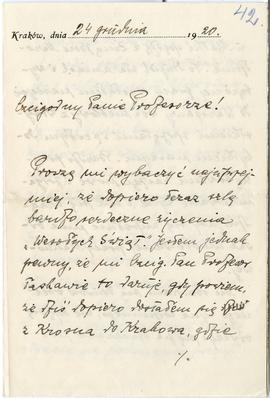 42.
Kraków, dnia 24 grudnia 1920.
Czcigodny Panie Profesorze!
Proszę mi wybaczyć najuprzej-
miej, że dopiero teraz ślę
bardzo serdeczne życzenia
„Wesołych Świąt". Jestem jednak
pewny, że mi Czcig. Pan Profesor
łaskawie to daruje, gdy powiem,
że dziś dopiero dostałem się
z Krosna do Krakowa, gdzie
./.